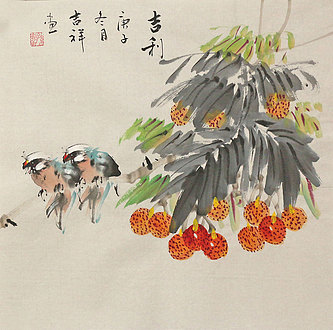 吉利
庚子
冬月
吉祥
画